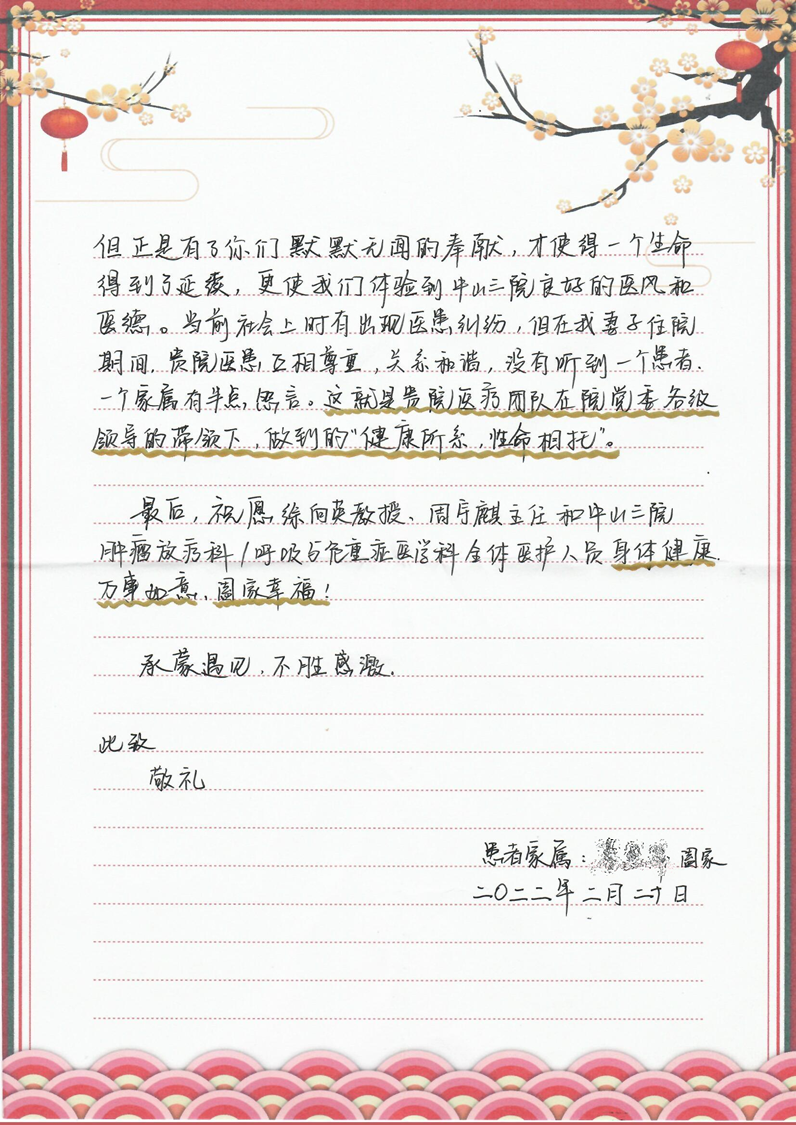 但正是有了你们默默无闻的奉献，才使得一个生命
得到了延续，更使我们体验到中山三院良好的医风和
医德。当前社会上时有出现医患纠纷，但在我妻子住院
期间，贵院医患互相尊重，关系和谐，没有听到一个患者、
一个家属有半点怨言。这就是贵院医疗团队在院党委各级
领导的带领下，做到的“健康所系，性命相托”。
最后，祝愿徐向英教授、周宇麒主任和中山三院
肿瘤放疗科/呼吸与危重症医学科全体医护人员身体健康、
万事如意、阖家幸福！
承蒙遇见，不胜感激.
此致
敬礼
患者家属： 阖家
二〇二二年二月二十日